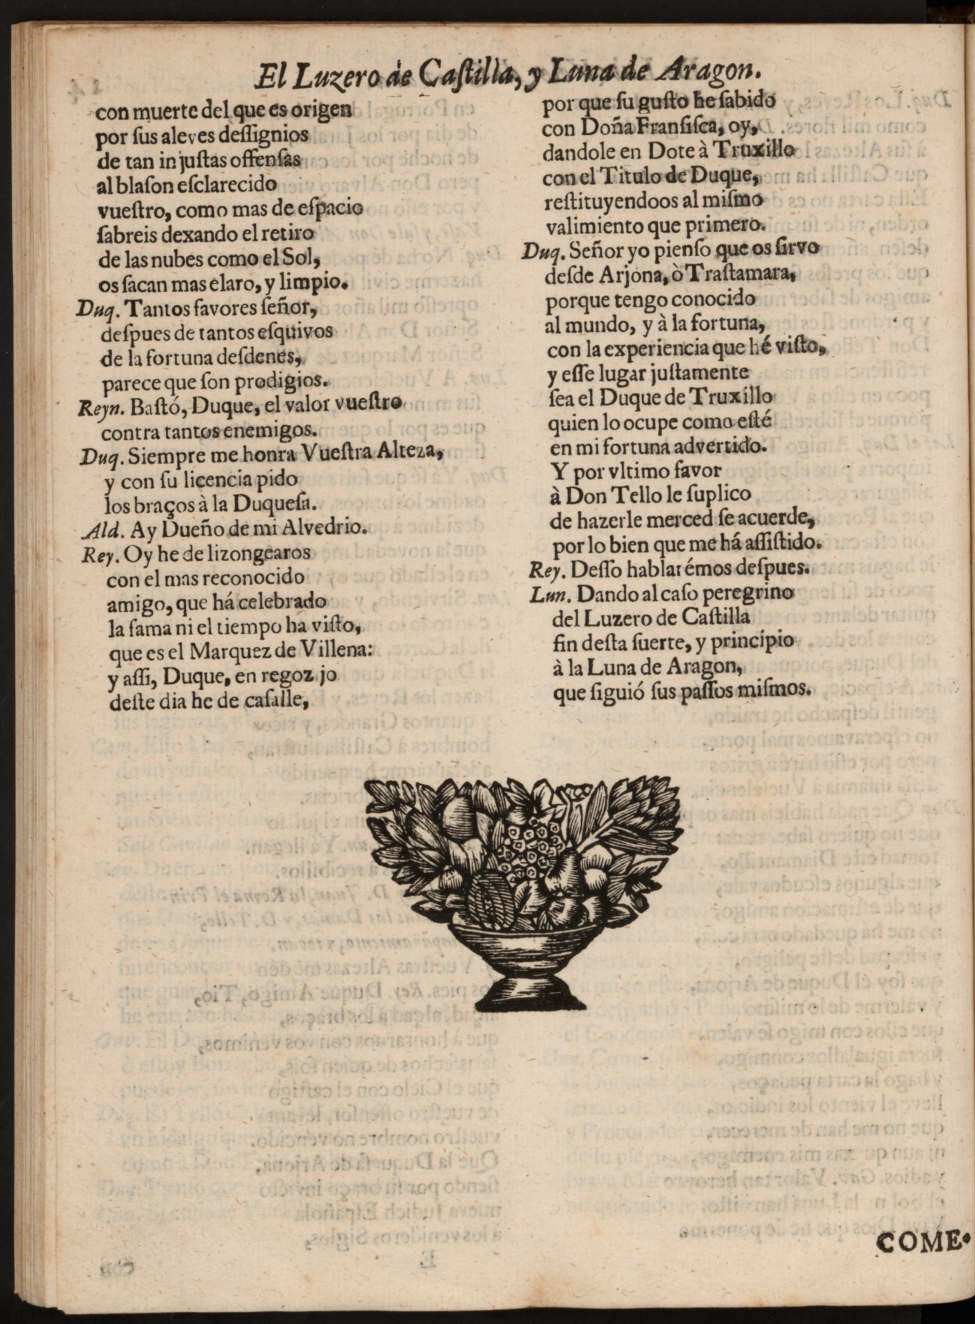 El Luzero de Caſtilla, y Luna de Aragon.
con muerte del que es origen
por ſus aleves deſſignios
de tan injuſtas offenſas
al blaſon eſclarecido
vueſtro, como mas de eſpacio
ſabreis dexando el retiro
de las nubes como el Sol,
os ſacan mas elaro, y limpio.
Duq. Tantos favores ſeñor,
deſpues de tantos eſquivos
de la fortuna deſdenes,
parece que ſon prodigios.
Reyn. Baſtó, Duque, el valor vueſtro
contra tantos enemigos.
Duq. Siempre me honra Vueſtra Alteza,
y con ſu licencia pido
los braços à la Duqueſa.
Ald. Ay Dueño de mi Alvedrio.
Rey. Oy he de lizongearos
con el mas reconocido
amigo, que há celebrado
la fama ni el tiempo ha viſto,
que es el Marquez de Villena:
y aſſi, Duque, en regozjo
deſte dia he de caſalle,
por que ſu guſto he ſabido
con Doña Franſiſca, oy,
dandole en Dote à Truxillo
con el Titulo de Duque,
reſtituyendoos al miſmo
valimiento que primero.
Duq. Señor yo pienſo que os ſirvo
deſde Arjona, ò Traſtamara,
porque tengo conocido
al mundo, y à la fortuna,
con la experiencia que hé viſto,
y eſſe lugar juſtamente
ſea el Duque de Truxillo
quien lo ocupe como eſté
en mi fortuna advertido.
Y por vltimo favor
à Don Tello le ſuplico
de hazerle merced ſe acuerde,
por lo bien que me há aſſiſtido.
Rey. Deſſo hablarémos deſpues.
Lun. Dando al caſo peregrino
del Luzero de Caſtilla
fin deſta ſuerte, y principio
à la Luna de Aragon,
que ſiguió ſus paſſos miſmos.
COME-